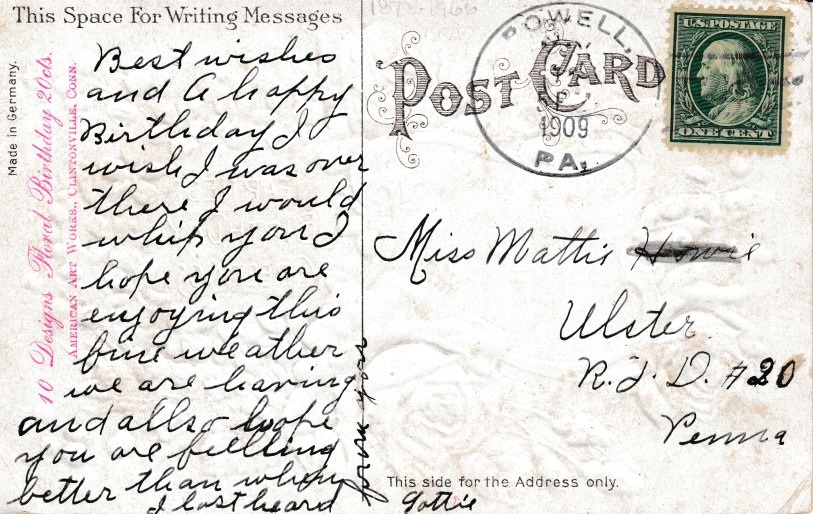 This Space For Writing Messages
Best wishes
and A happy
Birthday I
wish I was over
there I would
whip you I
hope you are
enjoying this
fine weather
we are having
and allso hope
you are feelling
better than when
I last heard
from you
Gottie
Made in Germany.
10 Designs Floral Birthday 20cts.
AMERICAN ART WORKS., CLINTONVILLE, CONN.
POST CARD
POWELL,
1909
PA.
U.S. POSTAGE
ONE CENT
Miss Mattie
Ulster
R.F.D. #20
Penna
This side for the Address only.